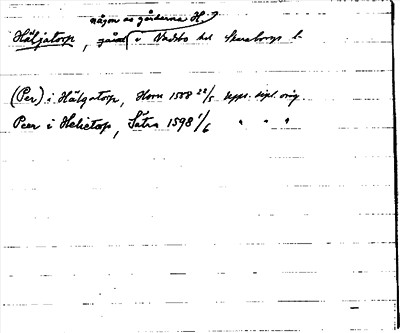 någon av gårdarna H.?
Håljatorp, gård i Vadsbo hd Skaraborgs l.
(Per) i Hålgatorp, Horn 1558 22/5 Uppl. dipl. orig.
Peer i Helietorp, Sätra 1598 1/6 " " "